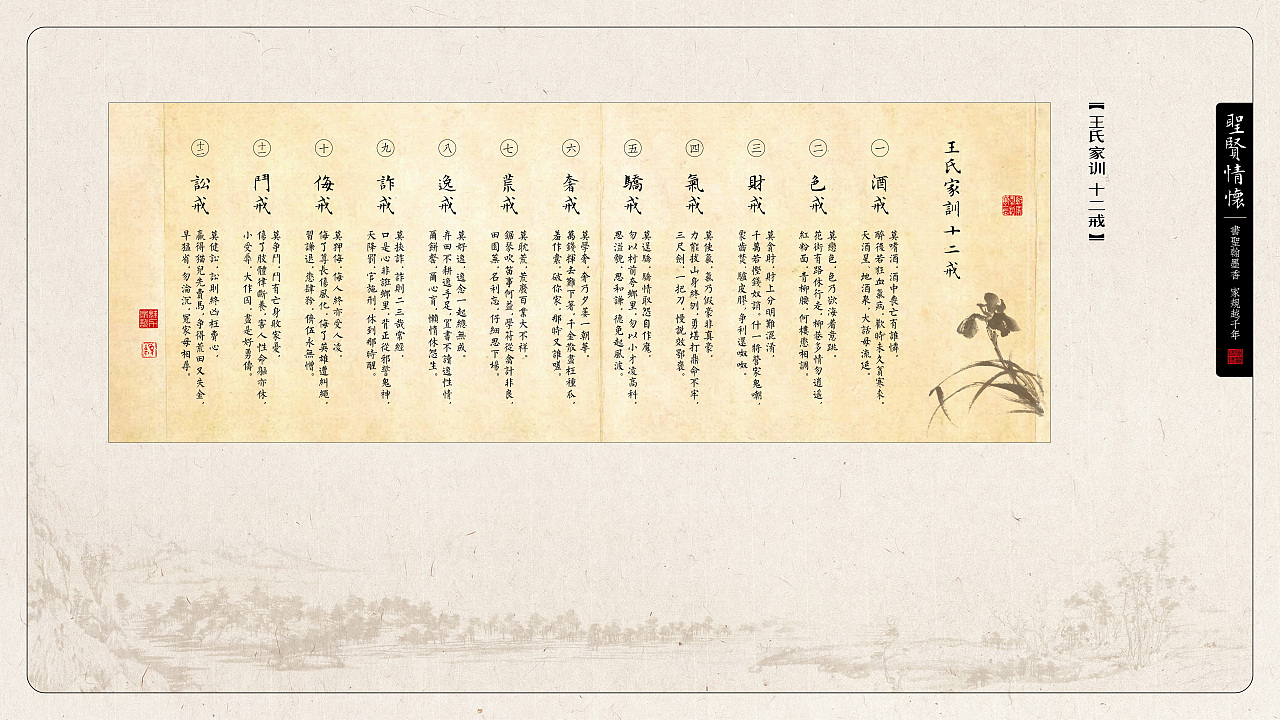 聖賢情懷
書聖翰墨香 家規越千年
【王氏家训 十二戒】
王氏家訓十二戒
一
酒戒
莫嗜酒,酒中喪亡有誰憐,
醉後若狂血氣病,歡時未久百哀來。
天酒星,地酒泉,大話毋流涎。
二
色戒
莫戀色,色乃欲海着意跳,
花街有路休行走,柳巷多情勿逍遙,
紅粉面,青柳腰,何樣惹相調。
三
財戒
莫貪財,財上分明難混淆,
千萬君慳錢奴計,什一將營家鬼嘲,
焚,驢皮膠,争利逞呶呶。
四
氣戒
莫使氣,氣乃假豪非真豪,
力能拔山身終刎,勇堪打鼎命不牢,
三尺劍,一把刀,慢說效鄂褒。
五
驕戒
莫逞驕,驕情取怨自作魔,
勿以村前夸鄉里,勿以小才凌高科,
思溢,思和謙,德色起風波。
六
奢戒
莫學奢,奢乃夕茶一朝華,
萬錢揮去難下箸,千金散盡枉種瓜,
羞作,破你家,那時又誰嗟。
七
荒戒
莫耽荒,荒廢百業大不祥,
琴吹笛事何益,從禽計非良,
田園蕪,名利忘,仔細思下場。
八
逸戒
莫好逸,逸念一起總無成,
弃田不耕,置書不讀遠性情,
爾餅罄,爾心盲,懶惰休怨生。
九
詐戒
莫懷詐,詐則二三哉常經,
口是心非誑鄉里,背正從邪鬼神,
天降罰,官施刑,休到那時醒。
十
侮戒
莫狎侮,侮人終亦受人凌,
侮了尊長傷風化,侮了英雄遭糾繩,
習謙退,肆矜,儕伍永無憎。
十一
鬥戒
莫争鬥,鬥有亡身敗家憂,
傷了體律斷,害人性命軀亦休,
小受辱,大作囚,盡是好勇儔。
十二
訟戒
莫健訟,訟則終凶枉費心,
贏得猫兒先賣馬,争得荒田又失金,
早猛省,勿淪沉,冤家毋相尋。